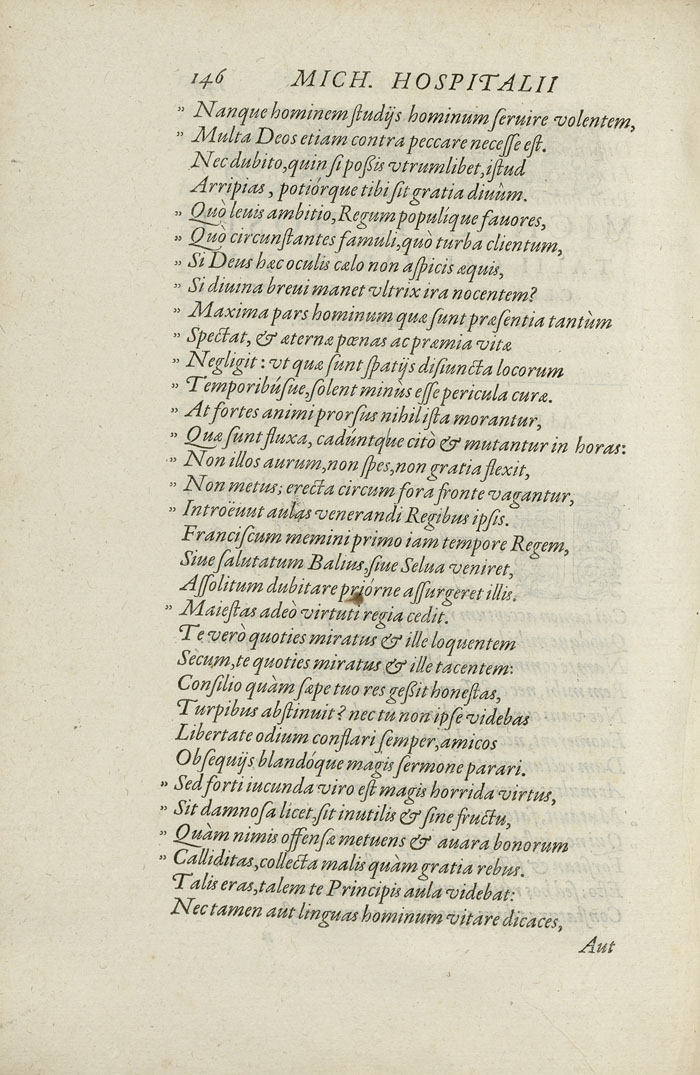 146 MICH. HOSPITALII
" Nanque hominem ſtudijs hominum ſeruire volentem,
" Multa Deos etiam contra peccare neceſſe eſt.
Nec dubito, quin ſi poßis vtrumlibet, iſtud
Arripias, potiórque tibi ſit gratia diuûm.
" Quò leuis ambitio, Regum populique fauores,
" Quò circunſtantes famuli, quò turba clientum,
" Si Deus hæc oculis cælo non aſpicis æquis,
" Si diuina breui manet vltrix ira nocentem?
" Maxima pars hominum quæ ſunt præſentia tantùm
" Spectat, & æternæ pœnas ac præmia vitæ
" Negligit: vt quæ ſunt ſpatijs diſiuncta locorum
" Temporibúſue, ſolent minùs eſſe pericula curæ.
" At fortes animi prorſus nihil iſta morantur,
" Quæ ſunt fluxa, cadúntque citò & mutantur in horas:
" Non illos aurum, non ſpes, non gratia flexit,
" Non metus; erecta circum fora fronte vagantur,
" Introëuut aulas venerandi Regibus ipſis.
Franciſcum memini primo iam tempore Regem,
Siue ſalutatum Balius, ſiue Selua veniret,
Aſſolitum dubitare priórne aſſurgeret illis.
" Maieſtas adeò virtuti regia cedit.
Te verò quoties miratus & ille loquentem
Secum, te quoties miratus & ille tacentem:
Conſilio quàm ſæpe tuo res geßit honeſtas,
Turpibus abſtinuit? nec tu non ipſe videbas
Libertate odium conflari ſemper, amicos
Obſequijs blandóque magis ſermone parari.
" Sed forti iucunda viro eſt magis horrida virtus,
" Sit damnoſa licet, ſit inutilis & ſine fructu,
" Quàm nimis offenſæ metuens & auara bonorum
" Calliditas, collecta malis quàm gratia rebus.
Talis eras, talem te Principis aula videbat:
Nec tamen aut linguas hominum vitare dicaces,
Aut